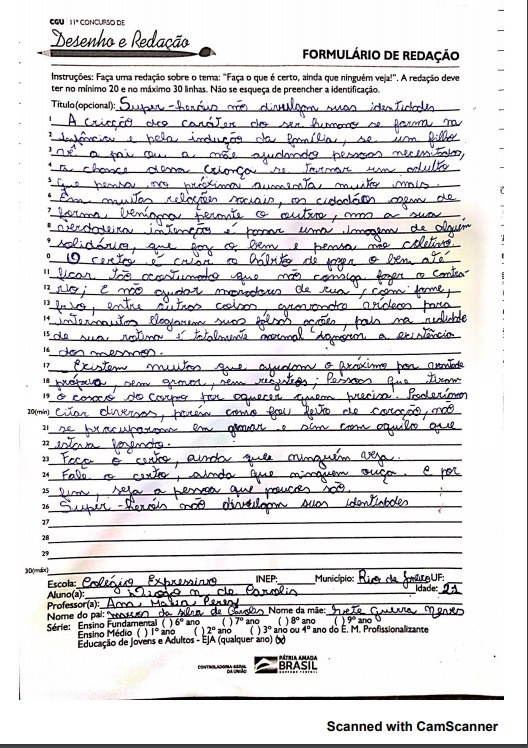 CGU 11º CONCURSO DE
Desenho e Redação
FORMULÁRIO DE REDAÇÃO
Instruções: Faça uma redação sobre o tema: "Faça o que é certo, ainda que ninguém veja!". A redação deve
ter no mínimo 20 e no máximo 30 linhas. Não se esqueça de preencher a identificação.
Título(opcional): Super-heróis não divulgam suas identidades
1 A criação do caráter do ser humano se forma na
2 infância e pela indução da família, se um filho
3 vê a pai ou a mãe ajudando pessoas necessitadas,
4 a chance dessa criança se tornar um adulto
5 que pensa no próximo aumenta muito mais.
6 Em muitas relações sociais, os cidadãos agem de
7 forma benigna perante o outro, mas a sua
8 verdadeira intenção é passar uma imagem de alguém
9 solidário, que faz o bem e pensa no coletivo.
10 O certo é criar o hábito de fazer o bem até
11 ficar tão acostumado que não consiga fazer o contrá-
12 rio; E não ajudar moradores de rua, com fome,
13 frio, entre outras coisas gravando vídeos para
14 internautas elogiarem suas falsas ações, pois na realidade
15 de sua rotina é totalmente normal ignorar a existência
16 dos mesmos.
17 Existem muitos que ajudam o próximo por vontade
18 própria, sem gravar, sem registros; Pessoas que tiram
19 o casaco do corpo por aquecer quem precisa. Poderíamos
20(min) citar diversas, porém como foi feito de coração, não
21 se preocuparam em gravar e sim com aquilo que
22 estava fazendo.
23 Faça o certo, ainda que ninguém veja.
24 Fale o certo, ainda que ninguém ouça. E por
25 fim, seja a pessoa que poucos são.
26 Super-heróis não divulgam suas identidades
27
28
29
30(máx)
Escola: Colégio Expressivo INEP: Município: Rio de Janeiro UF:
Aluno(a): Diogo n de Carolis Idade: 21
Professor(a): Ana Maria Perez
Nome do pai: marcos da silva de Carolis Nome da mãe: Ivete Guerra Neves
Série: Ensino Fundamental ( ) 6º ano ( ) 7º ano ( ) 8º ano ( ) 9º ano
Ensino Médio ( ) 1º ano ( ) 2º ano ( ) 3º ano ou 4º ano do E. M. Profissionalizante
Educação de Jovens e Adultos - EJA (qualquer ano) (x)
CONTROLADORIA-GERAL
DA UNIÃO
PÁTRIA AMADA
BRASIL
GOVERNO FEDERAL
Scanned with CamScanner